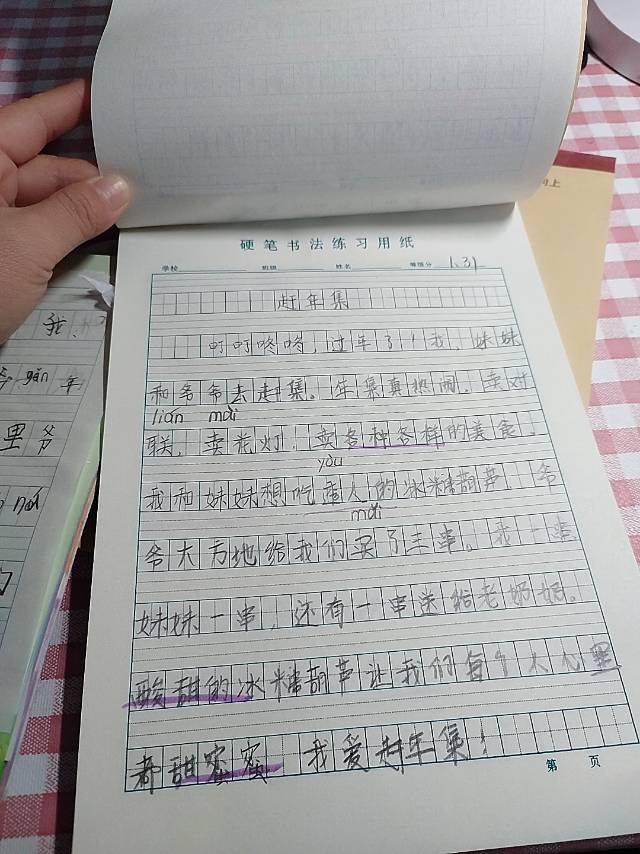 硬笔书法练习用纸
学校 班级 姓名 等级分 1.31
赶年集
叮叮咚咚,过年了!我、妹妹
和爷爷去赶集。年集真热闹,卖对
lián mài
联,卖花灯,卖各种各样的美食。
yòu
我和妹妹想吃诱人的冰糖葫芦,爷
mǎi
爷大方地给我们买了三串。我一串
妹妹一串,还有一串送给老奶奶。
酸甜的冰糖葫芦让我们每个人心里
都甜蜜蜜 我爱赶年集!
第 页
我、
gǎn 年
里 爷